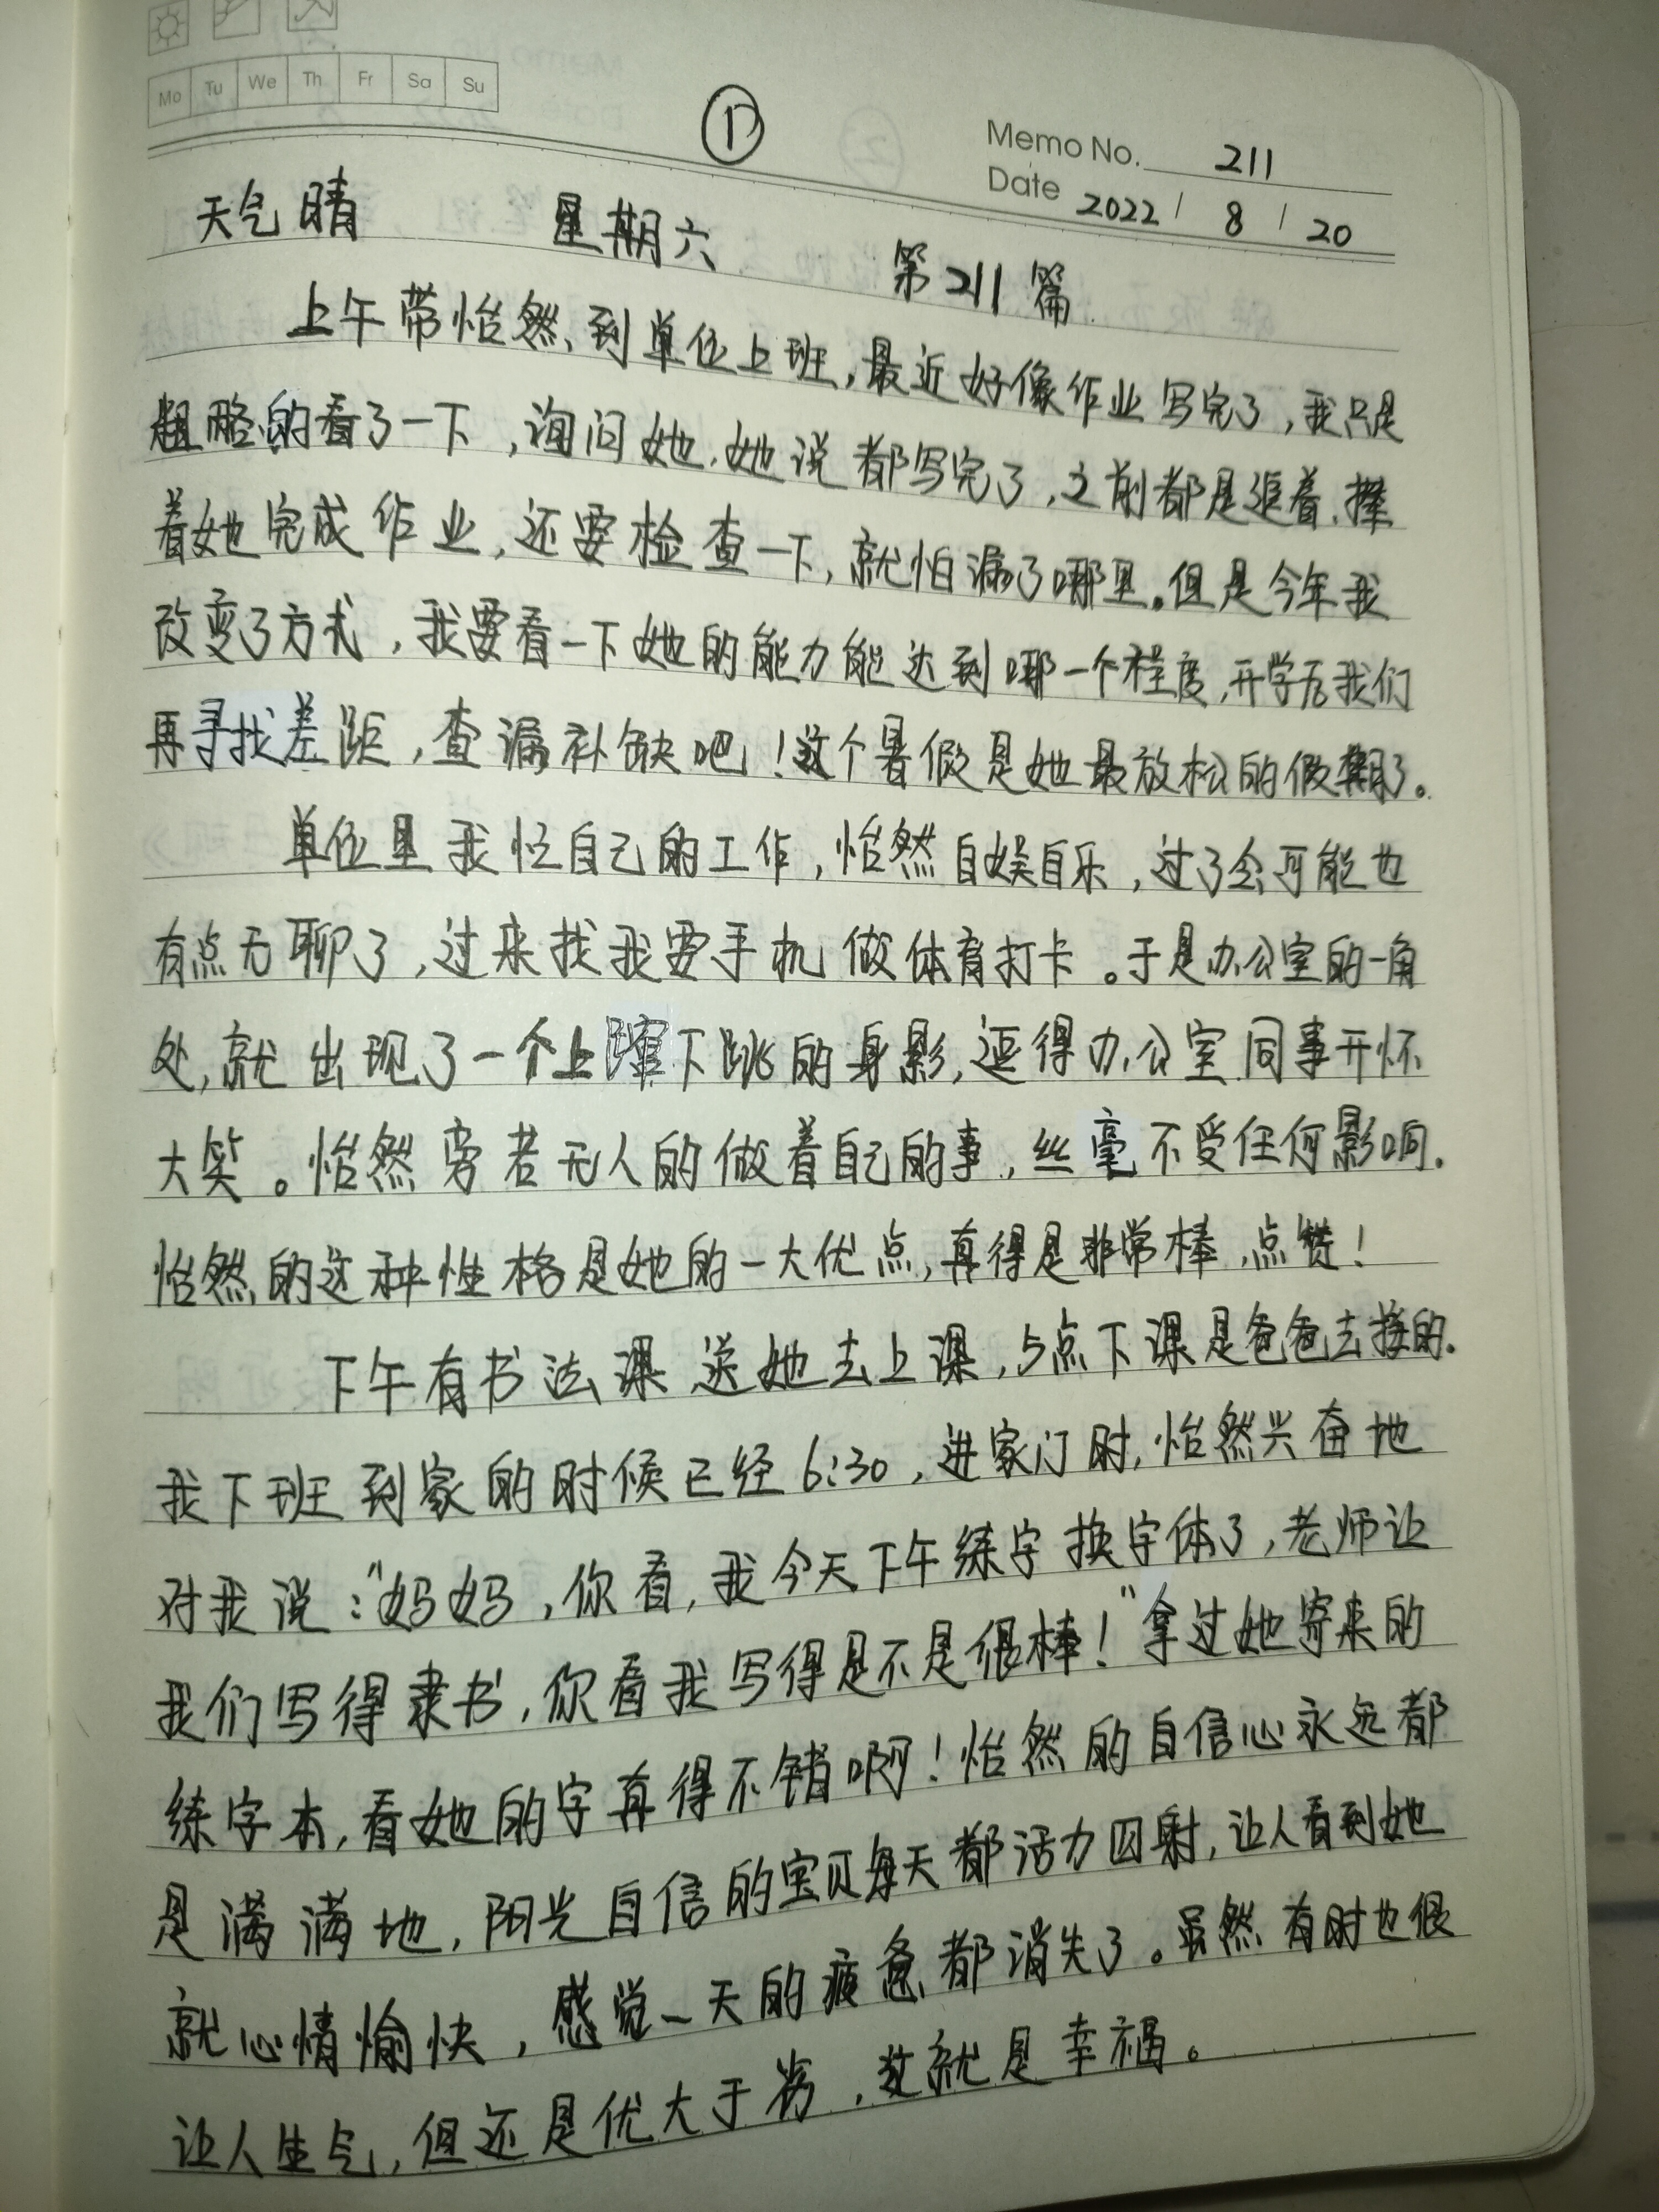 Mo Tu We Th Fr Sa Su
①
Memo No. 211
Date 2022 / 8 / 20
天气晴 星期六 第211篇
上午带怡然到单位上班,最近好像作业写完了,我只是
粗略的看了一下,询问她,她说都写完了,之前都是追着,撵
着她完成作业,还要检查一下,就怕漏了哪里。但是今年我
改变了方式,我要看一下她的能力能达到哪一个程度,开学后我们
再寻找差距,查漏补缺吧!这个暑假是她最放松的假期了。
单位里我忙自己的工作,怡然自娱自乐,过了会可能也
有点无聊了,过来找我要手机做体育打卡。于是办公室的一角
处,就出现了一个上蹿下跳的身影,逗得办公室同事开怀
大笑。怡然旁若无人的做着自己的事,丝毫不受任何影响.
怡然的这种性格是她的一大优点,真得是非常棒,点赞!
下午有书法课送她去上课,5点下课是爸爸去接的.
我下班到家的时候已经6:30,进家门时,怡然兴奋地
对我说:"妈妈,你看,我今天下午练字换字体了,老师让
我们写得隶书,你看我写得是不是很棒!"拿过她寄来的
练字本,看她的字真得不错啊!怡然的自信心永远都
是满满地,阳光自信的宝贝每天都活力四射,让人看到她
就心情愉快,感觉一天的疲惫都消失了。虽然有时也很
让人生气,但还是优大于劣,这就是幸福。